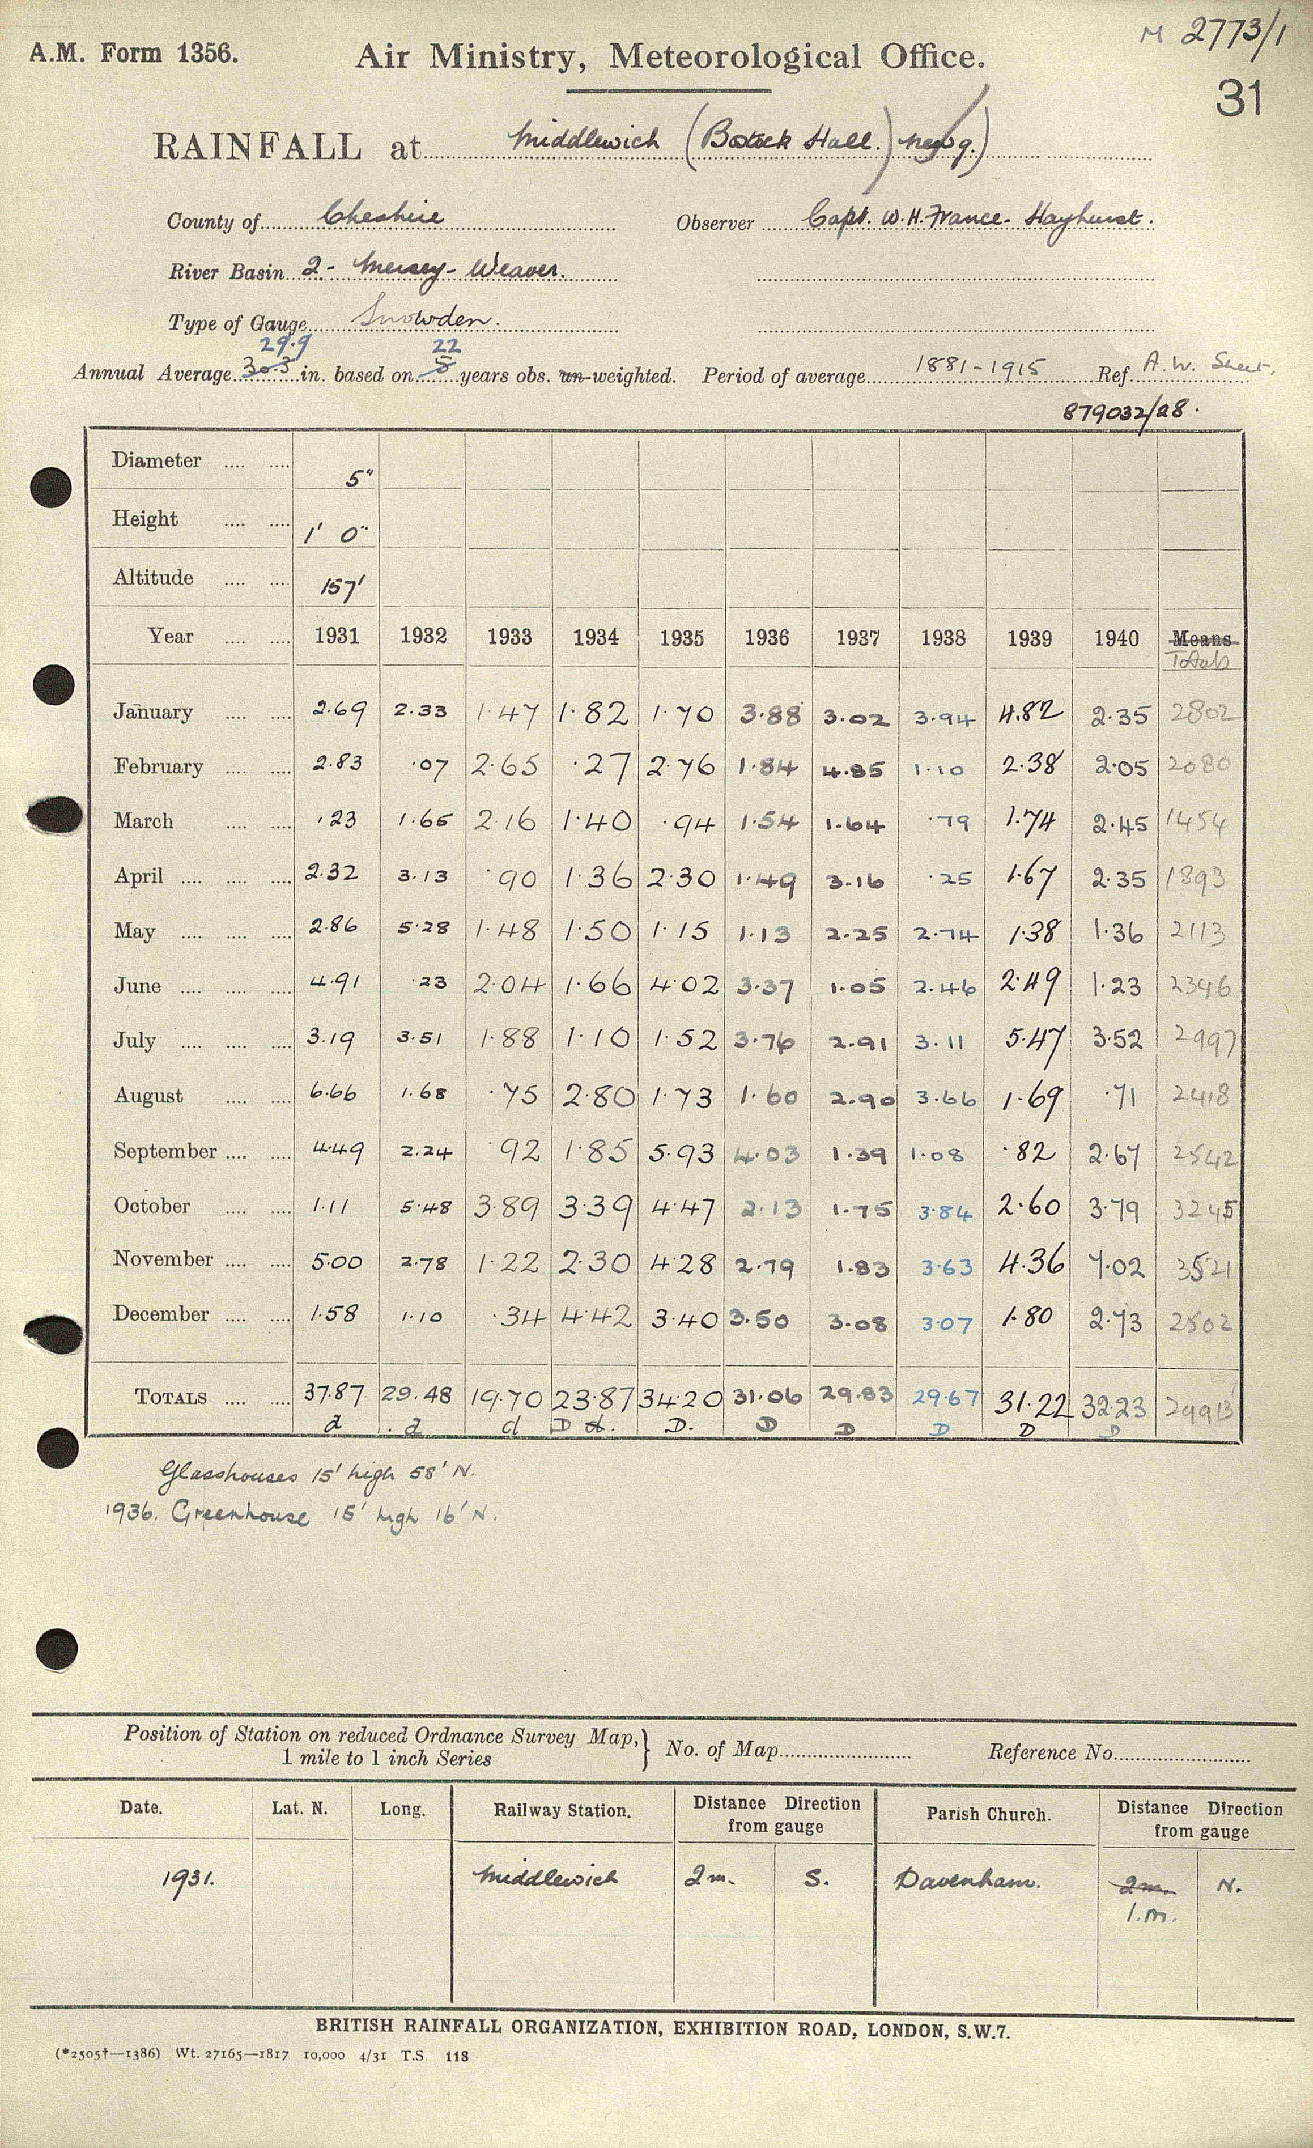 M 2773/1
A.M. Form 1356. Air Ministry, Meteorological Office.
31
RAINFALL at Middlewich (Bostock Hall.) new g.)
County of Cheshire Observer Capt. W.H. France-Hayhurst.
River Basin 2- Mersey-Weaver.
Type of Gauge Snowden.
29.9 22
Annual Average 30.3 in. based on 5 years obs. un-weighted. Period of average 1881-1915 Ref. A.W. Sheet.
879032/28.
Diameter .... .... 5"
Height .... .... 1' 0"
Altitude .... .... 157'
Year .... .... 1931 1932 1933 1934 1935 1936 1937 1938 1939 1940 Means
Totals
January .... .... 2.69 2.33 1.47 1.82 1.70 3.88 3.02 3.94 4.82 2.35 2802
February .... .... 2.83 .07 2.65 .27 2.76 1.84 4.85 1.10 2.38 2.05 2080
March .... .... .23 1.65 2.16 1.40 .94 1.54 1.64 .79 1.74 2.45 1454
April .... .... .... 2.32 3.13 .90 1.36 2.30 1.49 3.16 .25 1.67 2.35 1893
May .... .... .... 2.86 5.28 1.48 1.50 1.15 1.13 2.25 2.74 1.38 1.36 2113
June .... .... .... 4.91 .23 2.04 1.66 4.02 3.37 1.05 2.46 2.49 1.23 2346
July .... .... .... 3.19 3.51 1.88 1.10 1.52 3.76 2.91 3.11 5.47 3.52 2997
August .... .... 6.66 1.68 .75 2.80 1.73 1.60 2.90 3.66 1.69 .71 2418
September .... .... 4.49 2.24 .92 1.85 5.93 4.03 1.39 1.08 .82 2.67 2542
October .... .... 1.11 5.48 3.89 3.39 4.47 2.13 1.75 3.84 2.60 3.79 3245
November .... .... 5.00 2.78 1.22 2.30 4.28 2.79 1.83 3.63 4.36 7.02 3521
December .... .... 1.58 1.10 .34 4.42 3.40 3.50 3.08 3.07 1.80 2.73 2502
TOTALS .... .... 37.87 29.48 19.70 23.87 34.20 31.06 29.83 29.67 31.22 32.23 29913
d d d D d. D. D D D D D
Glasshouses 15' high 58' N.
1936. Greenhouse 15' high 16' N.
Position of Station on reduced Ordnance Survey Map, } No. of Map Reference No.
1 mile to 1 inch Series
Date. Lat. N. Long. Railway Station. Distance Direction from gauge Parish Church. Distance Direction from gauge
1931. Middlewich 2m. S. Davenham. 2m. N.
1.m.
BRITISH RAINFALL ORGANIZATION, EXHIBITION ROAD, LONDON, S.W.7.
(*2505†—1386) Wt. 27165—1817 10,000 4/31 T.S. 118